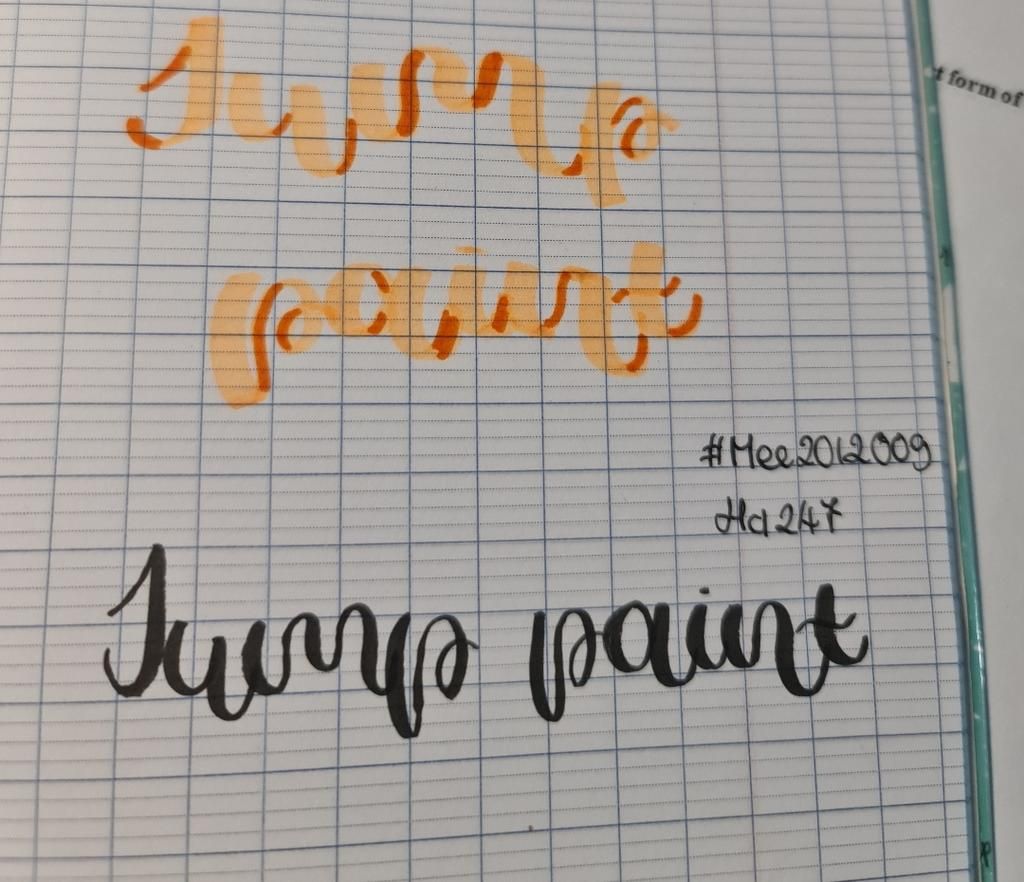 Jump
paint
#Mee2012009
Ha247
Jump paint
t form of